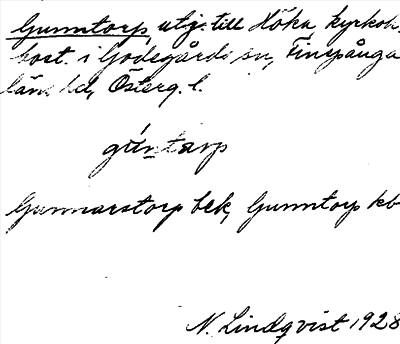 Gunntorp, utg. till Höka, kyrkoh.
bost. i Godegårds sn, Finspånga
läns hd, Österg. l.
gúntarp
Gunnarstorp bek, Gunntorp kb
N. Lindqvist 1928